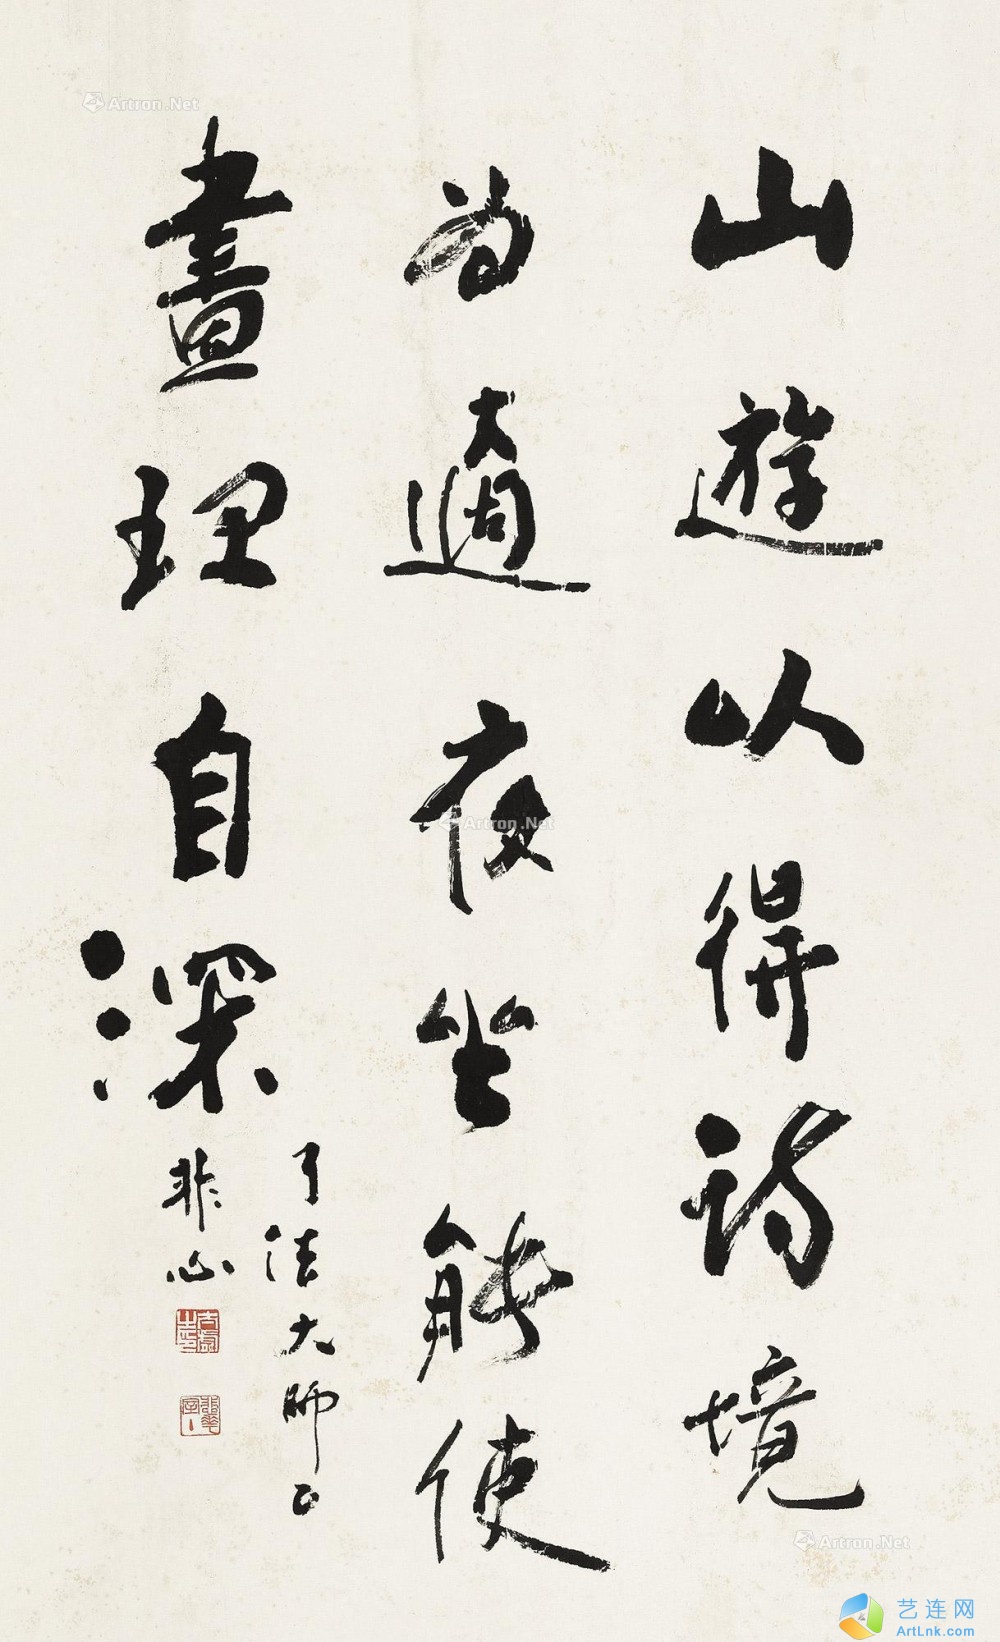 山遊以得詩境
為適夜坐能使
畫理自深
了法大師正
非心
Artron.Net
Artron.Net
Artron.Net
艺连网
ArtLnk.com